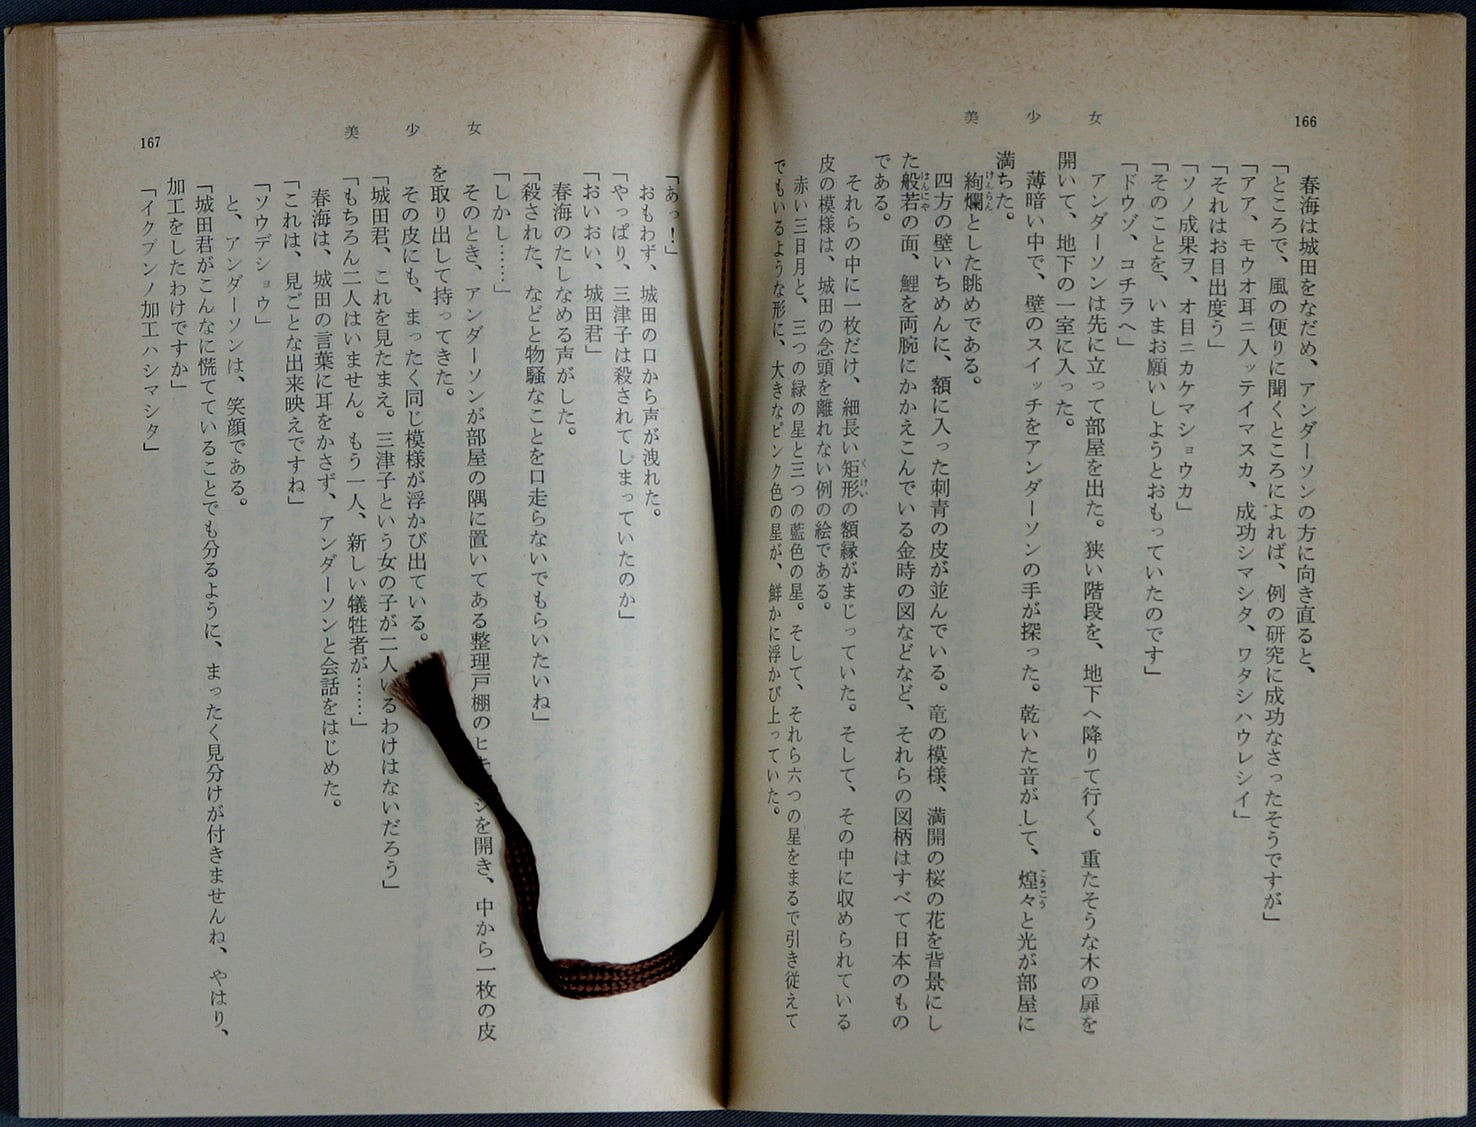 166
美少女
春海は城田をなだめ、アンダーソンの方に向き直ると、
「ところで、風の便りに聞くところによれば、例の研究に成功なさったそうですが」
「アア、モウオ耳ニ入ッテイマスカ、成功シマシタ、ワタシハウレシイ」
「それはお目出度う」
「ソノ成果ヲ、オ目ニカケマショウカ」
「そのことを、いまお願いしようとおもっていたのです」
「ドウゾ、コチラヘ」
アンダーソンは先に立って部屋を出た。狭い階段を、地下へ降りて行く。重たそうな木の扉を
開いて、地下の一室に入った。
薄暗い中で、壁のスイッチをアンダーソンの手が探った。乾いた音がして、煌々と光が部屋に
満ちた。
絢爛とした眺めである。
四方の壁いちめんに、額に入った刺青の皮が並んでいる。竜の模様、満開の桜の花を背景にし
た般若の面、鯉を両腕にかかえこんでいる金時の図などなど、それらの図柄はすべて日本のもの
である。
それらの中に一枚だけ、細長い矩形の額縁がまじっていた。そして、その中に収められている
皮の模様は、城田の念頭を離れない例の絵である。
赤い三日月と、三つの緑の星と三つの藍色の星。そして、それら六つの星をまるで引き従えて
でもいるような形に、大きなピンク色の星が、鮮かに浮かび上っていた。
167
美少女
「あっ！」
おもわず、城田の口から声が洩れた。
「やっぱり、三津子は殺されてしまっていたのか」
「おいおい、城田君」
春海のたしなめる声がした。
「殺された、などと物騒なことを口走らないでもらいたいね」
「しかし……」
そのとき、アンダーソンが部屋の隅に置いてある整理戸棚のヒキ シを開き、中から一枚の皮
を取り出して持ってきた。
その皮にも、まったく同じ模様が浮かび出ている。
「城田君、これを見たまえ。三津子という女の子が二人いるわけはないだろう」
「もちろん二人はいません。もう一人、新しい犠牲者が……」
春海は、城田の言葉に耳をかさず、アンダーソンと会話をはじめた。
「これは、見ごとな出来映えですね」
「ソウデショウ」
と、アンダーソンは、笑顔である。
「城田君がこんなに慌てていることでも分るように、まったく見分けが付きませんね、やはり、
加工をしたわけですか」
「イクブンノ加工ハシマシタ」